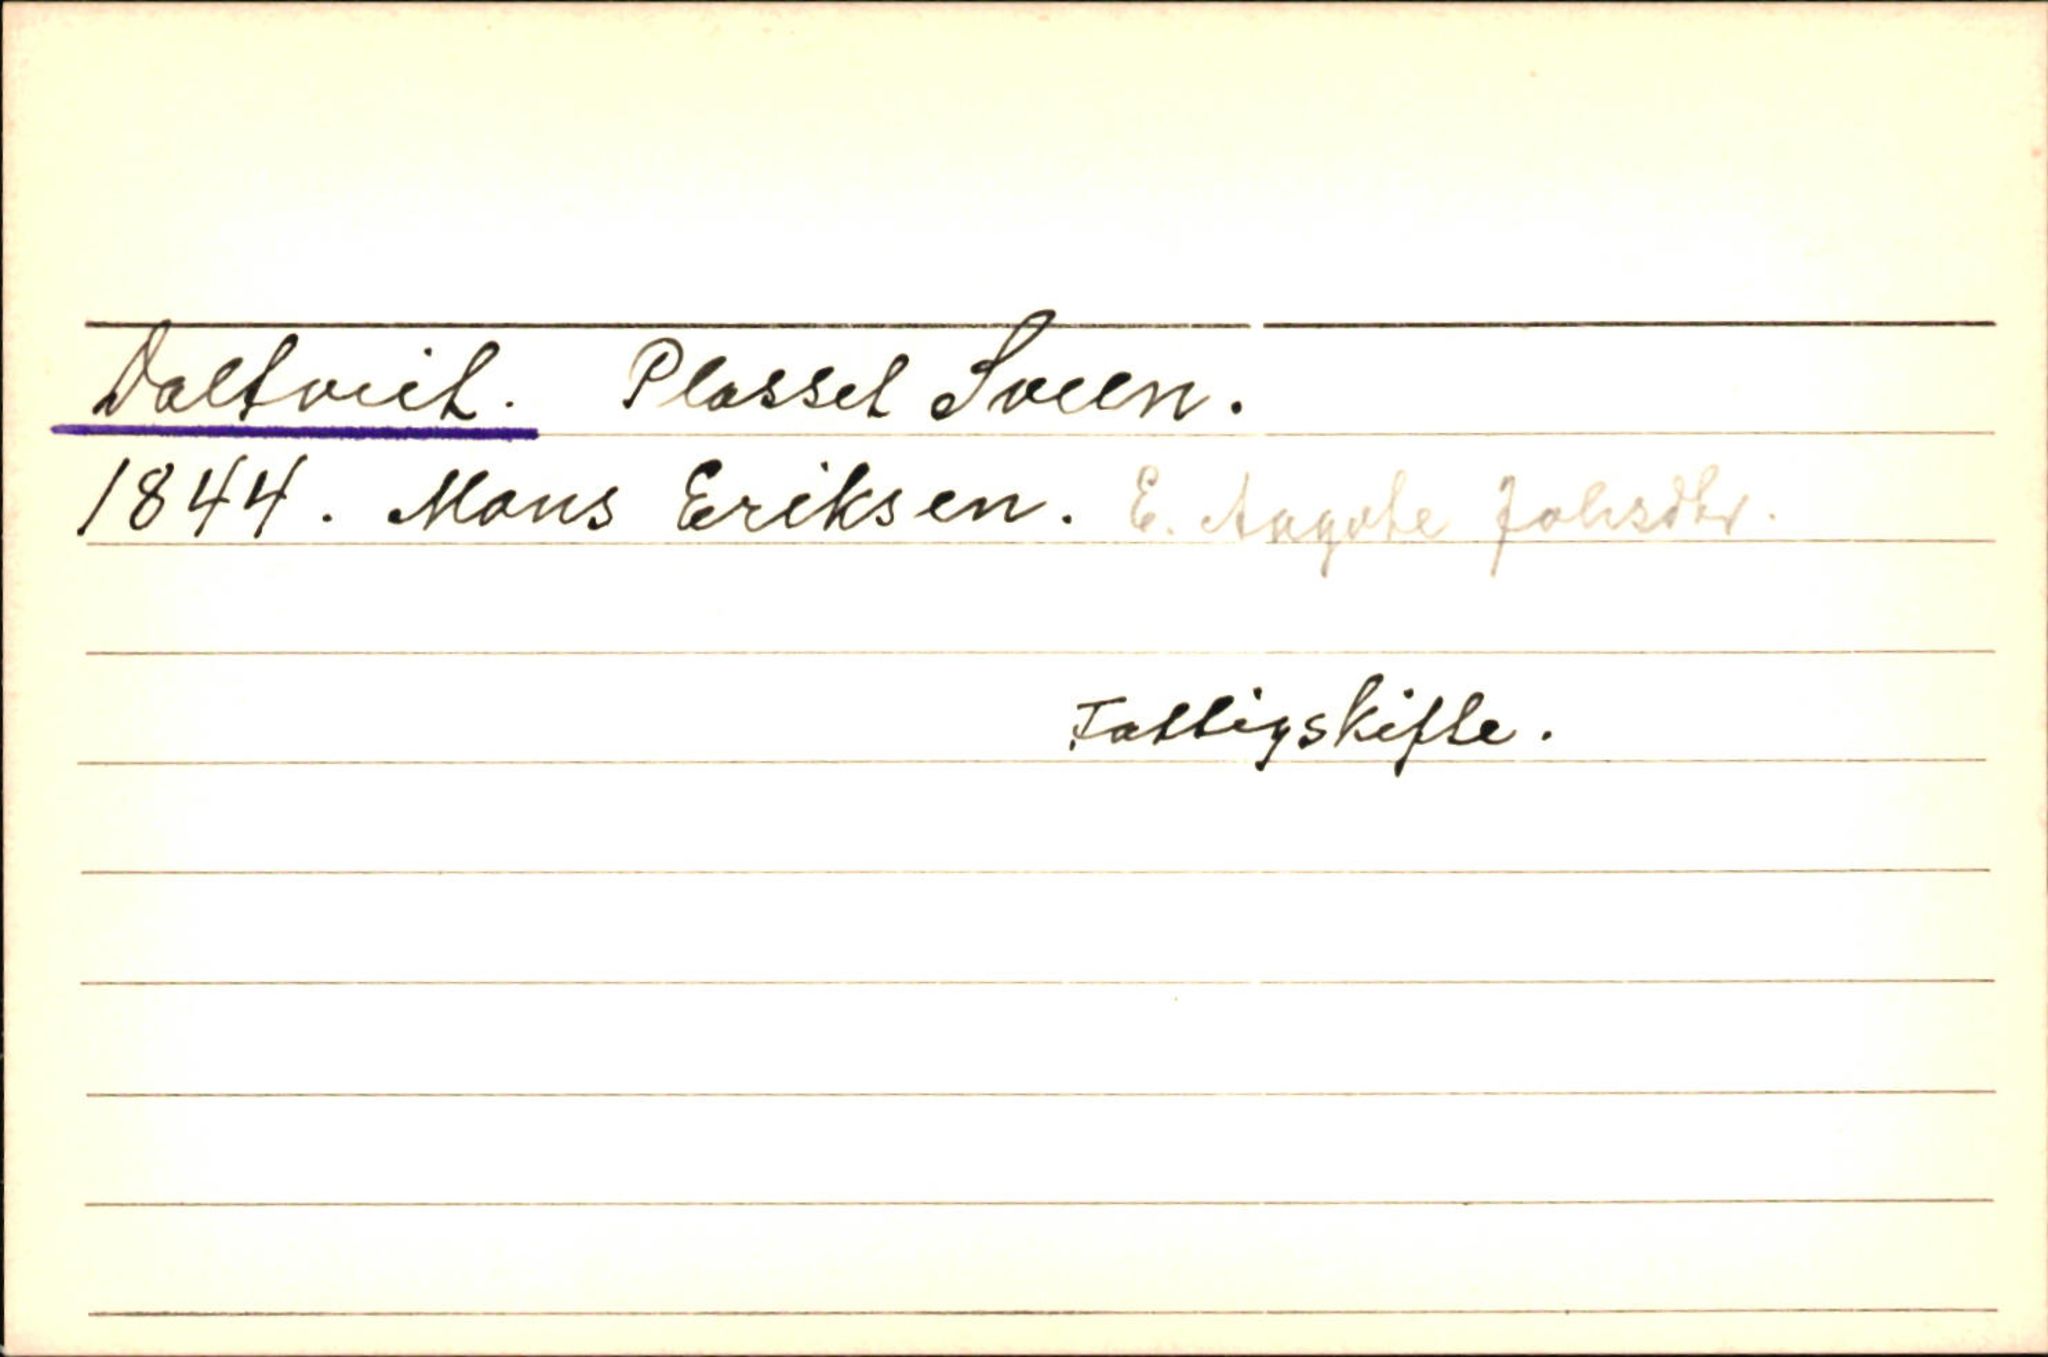 Daltveit. Plasset Sveen.
1844. Mons Eriksen. E. Angote Johsdtr.
Fattigskifte.